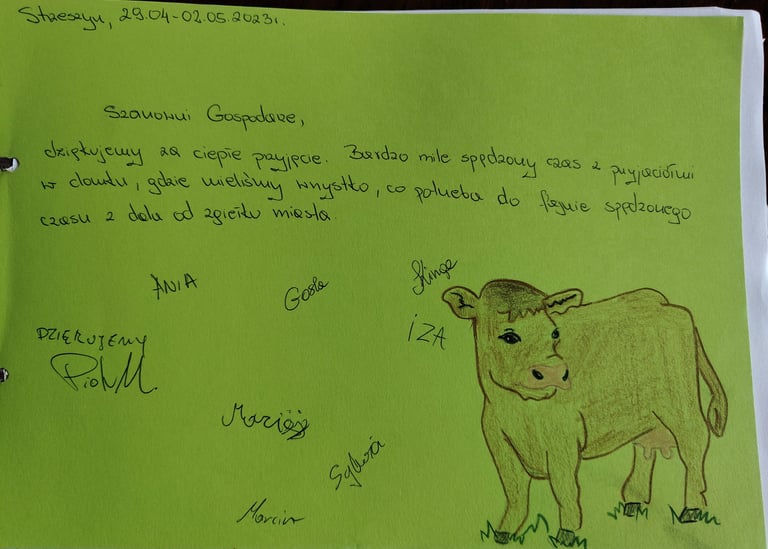 Strzeszyn, 29.04-02.05.2023r.
Szanowni Gospodarze,
dziękujemy za ciepłe przyjęcie. Bardzo mile spędzony czas z przyjaciółmi
w domku, gdzie mieliśmy wszystko, co potrzeba do fajnie spędzonego
czasu z dala od zgiełku miasta.
ANIA
Gosia
Kinga
IZA
DZIĘKUJEMY
Piotr M.
Mariusz
Sylwia
Marcin